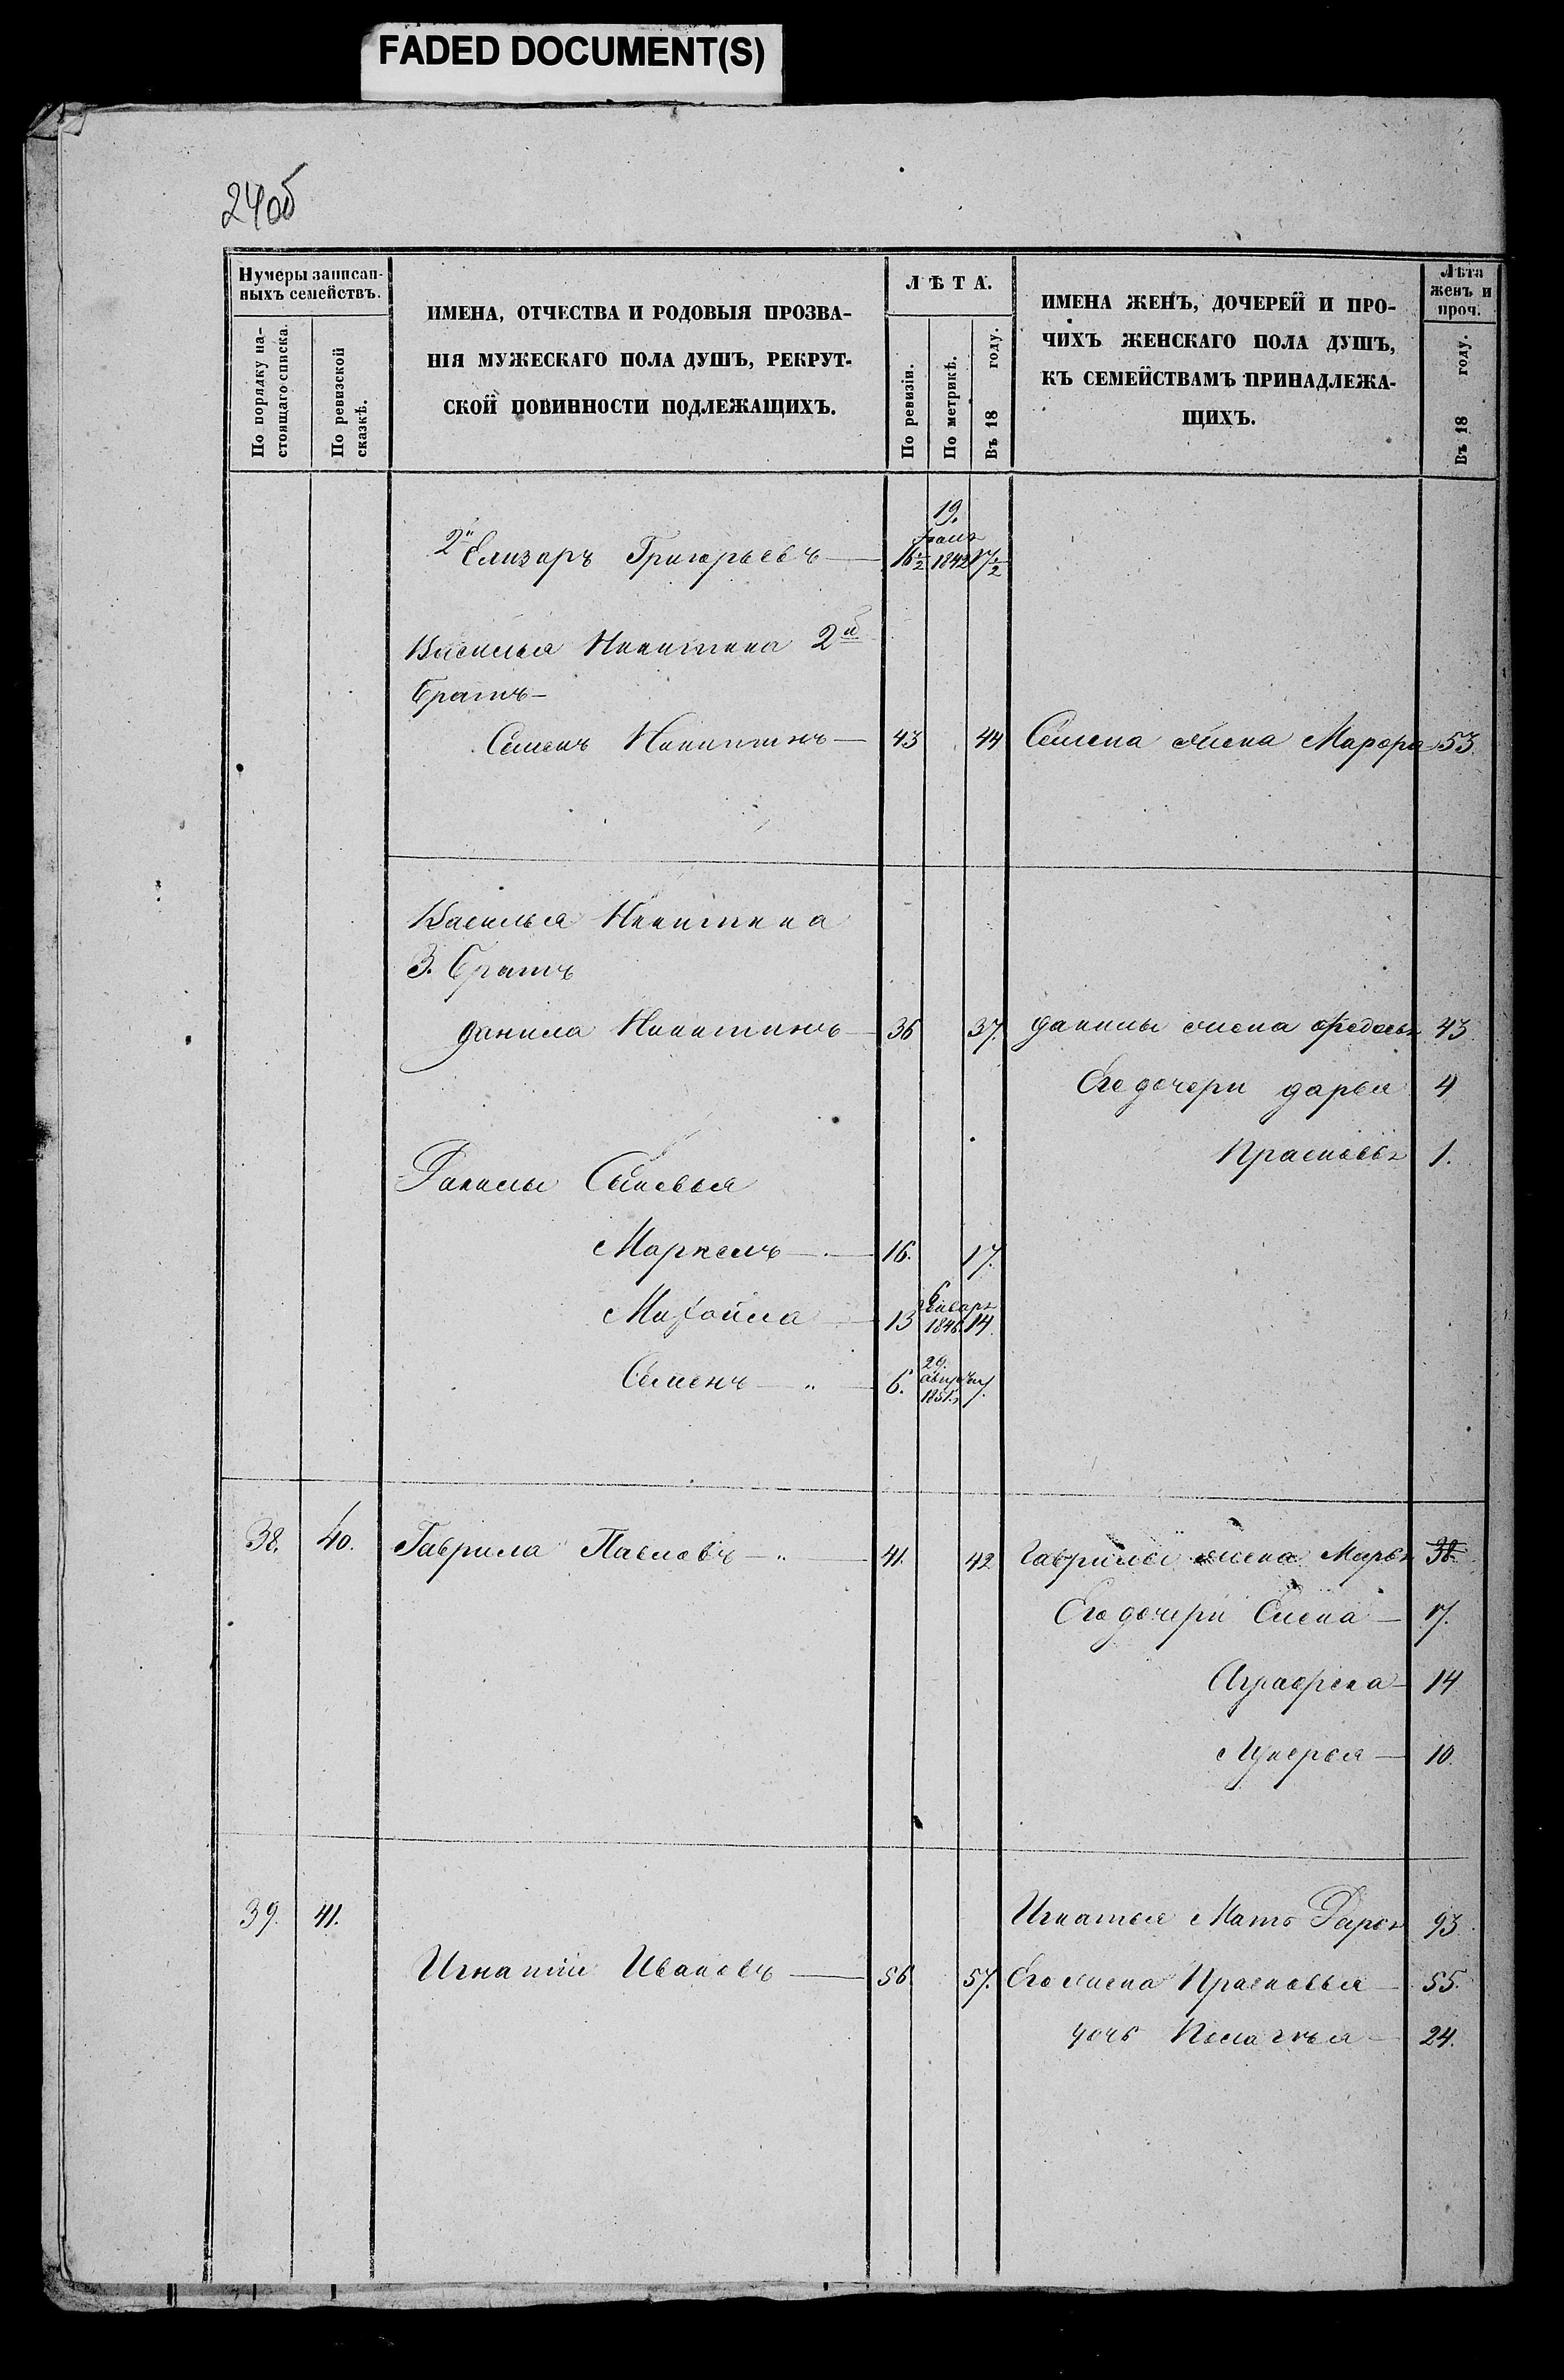 FADED DOCUMENT(S)
24об
Нумеры записан-
ныхъ семействъ.
По порядку на-
стоящаго списка.
По ревизской
сказкѣ.
ИМЕНА, ОТЧЕСТВА И РОДОВЫЯ ПРОЗВА-
НІЯ МУЖЕСКАГО ПОЛА ДУШЪ, РЕКРУТ-
СКОЙ ПОВИННОСТИ ПОДЛЕЖАЩИХЪ.
ЛѢТА.
По ревизіи.
По метрикѣ.
Въ 18 году.
ИМЕНА ЖЕНЪ, ДОЧЕРЕЙ И ПРО-
ЧИХЪ ЖЕНСКАГО ПОЛА ДУШЪ,
КЪ СЕМЕЙСТВАМЪ ПРИНАДЛЕЖА-
ЩИХЪ.
Лѣта
женъ и
проч.
Въ 18 году.
19.
2й Елизаръ Григорьевъ — 16½ 1842 17½
Василья Никитина 2й
братъ —
Семенъ Никитинъ — 43 44 Семена жена Марфа 53.
Василья Никитина
3. братъ
Данила Никитинъ 36 37. Данилы жена Федосья 43
Его дочери Дарья 4
Прасковья 1.
Данилы Сыновья
Маркелъ — 16. 17.
6
Января
Михайла 13 1846 14.
29.
августа
Семенъ — „ 6. 1851. 7.
38. 40. Гаврила Павловъ — „ — 41. 42 Гаврилы жена Марья 38.
Его дочери Елена — 17.
Аграфена — 14
Лукерья — 10.
39. 41. Игнатья Мать Дарья 93.
Игнатій Ивановъ — 56 57. Его жена Прасковья 55.
дочь Пелагѣя 24.